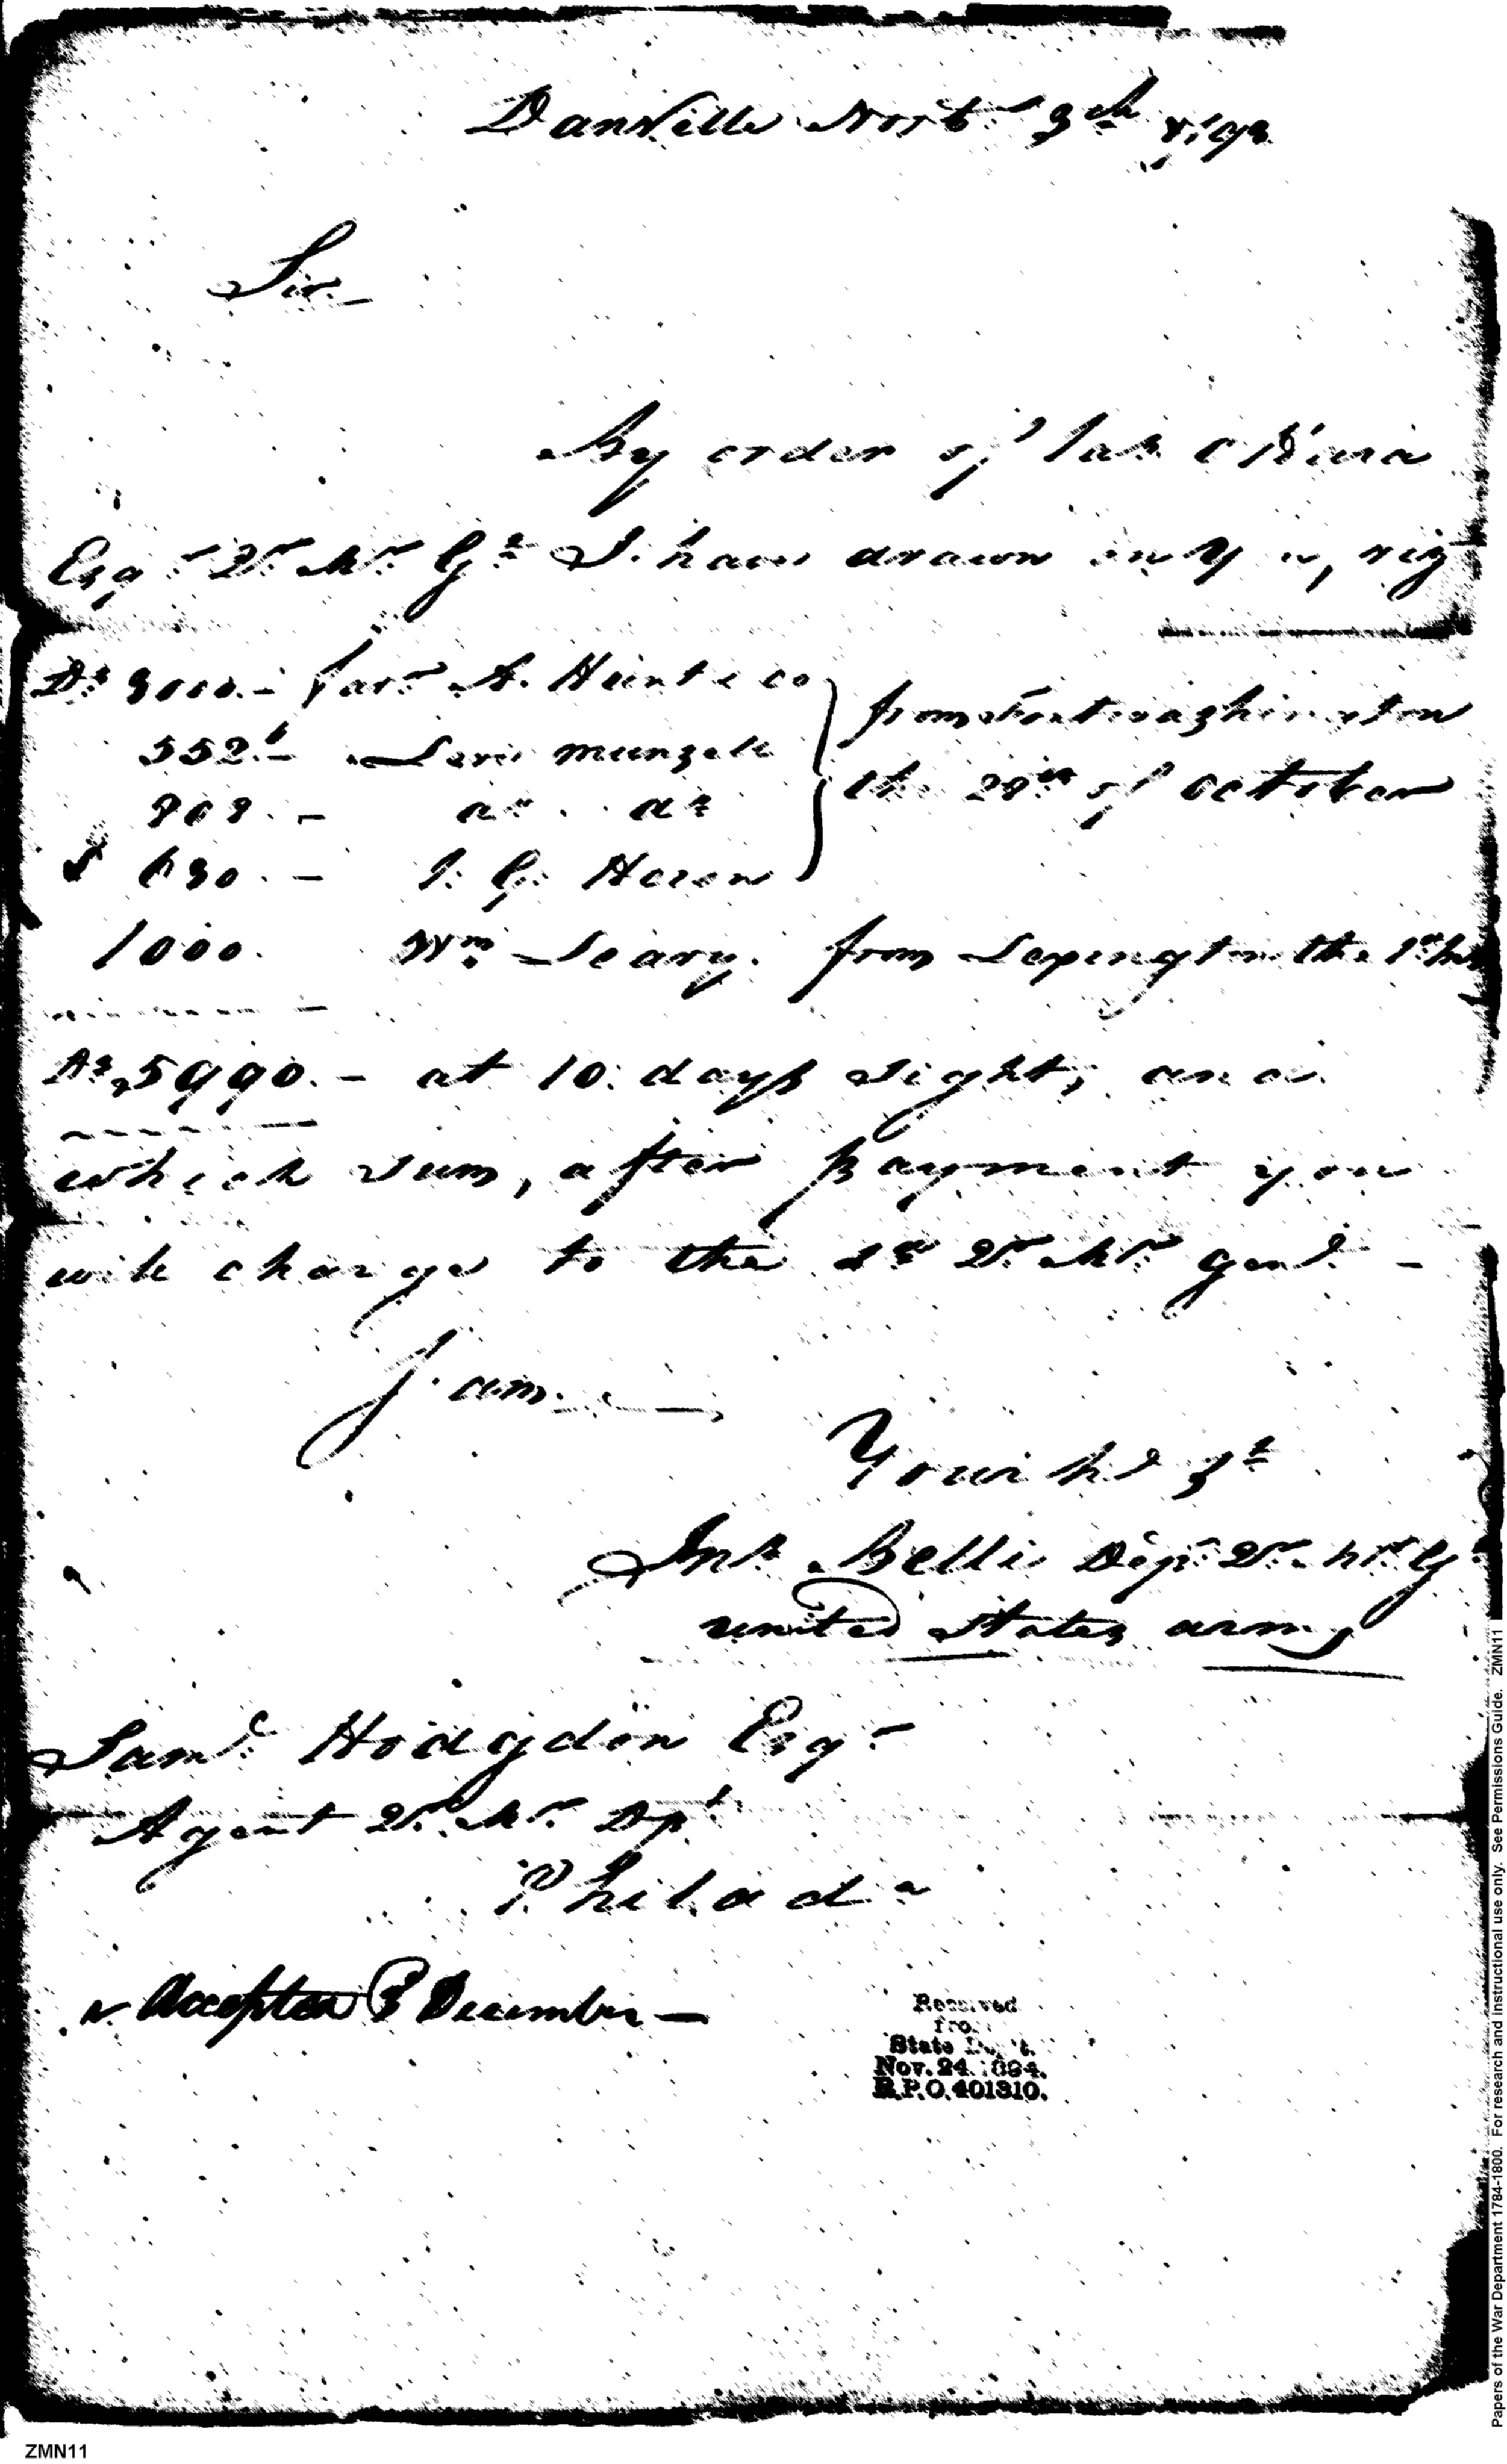 Danville Novbr 9th 1792
Sir
By order of Jas OHara
Esqr Qr Mr Gl I have drawn on you, viz
Ds 3000.- favr A. Hunt & co
552.- Levi Munsell
808.- do . do
630.- J. G. Heron
from Fort washington
the 28th of october
1000. Wm Seary. from Lexington the 1st
Ds 5990.- at 10 days sight, and
which sum, after payment you
will charge to the sd Qr Mr Genl -
I am
Your hl St
Jno Belli Depy Qr Mr G
united States army
Saml Hodgdon Esqr
Agent Qr Mr Dpt
Philada
Accepted 3 December -
Received
from
State Dep't.
Nov. 24. 1894.
R.P.O. 401310.
Papers of the War Department 1784-1800. For research and instructional use only. See Permissions Guide. ZMN11
ZMN11